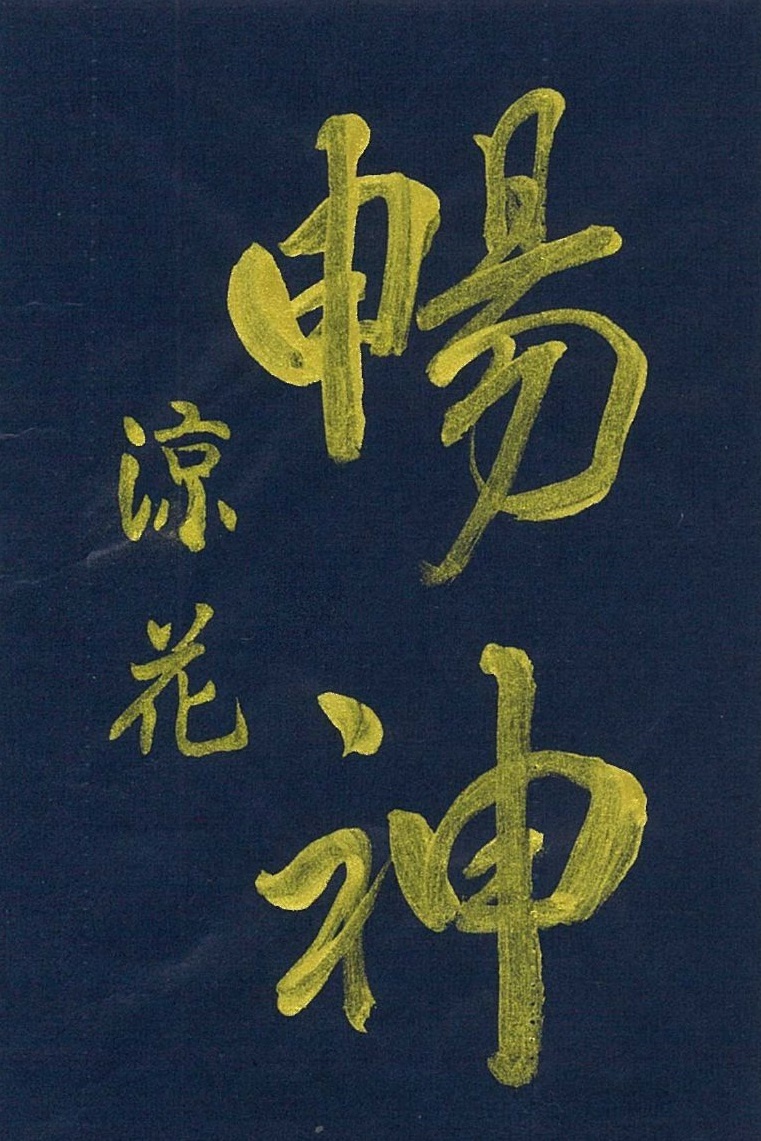 暢神
涼花